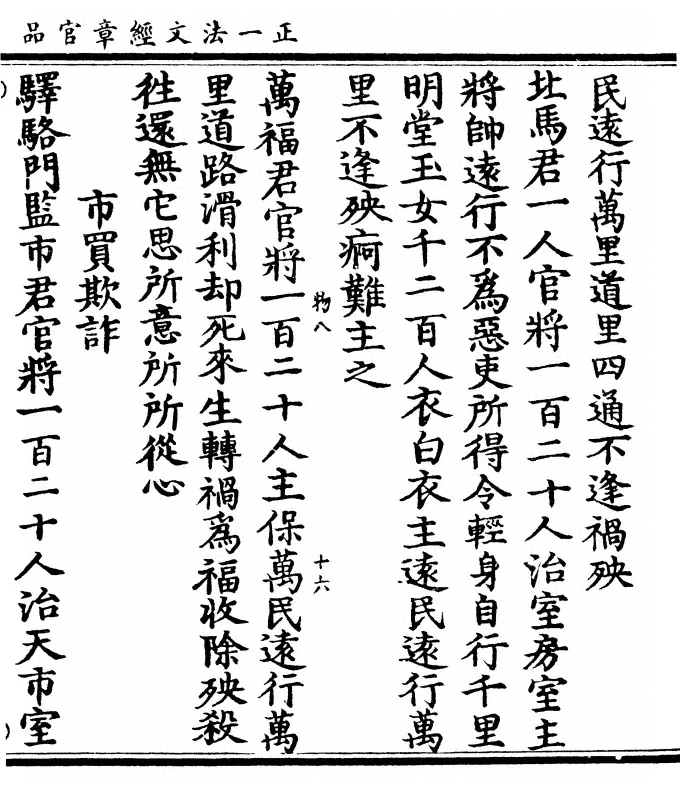 正一法文經章官品
民遠行萬里道里四通不逢禍殃
北馬君一人官將一百二十人治室房室主
將帥遠行不爲惡吏所得令輕身自行千里
明堂玉女千二百人衣白衣主遠民遠行萬
里不逢殃痾難主之
物八
十六
萬福君官將一百二十人主保萬民遠行萬
里道路滑利却死來生轉禍爲福收除殃殺
往還無它思所意所所從心
市買欺詐
驛駱門監市君官將一百二十人治天市室